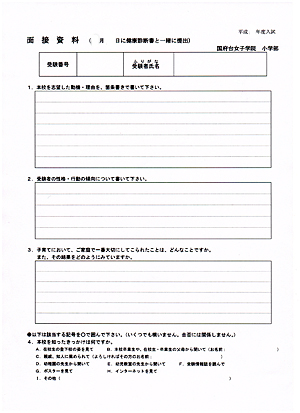 平成　年度入試
面接資料　（　月　日に健康診断書と一緒に提出）
国府台女子学院　小学部
受験番号
ふりがな
受験者氏名
1．本校を志望した動機・理由を、箇条書きで書いて下さい。
2．受験者の性格・行動の傾向について書いて下さい。
3．子育てにおいて、ご家庭で一番大切にしてこられたことは、どんなことですか。
また、その結果をどのようにみていますか。
●以下は該当する記号を○で囲んで下さい。（いくつでも構いません。合否には関係しません。）
4．本校を知ったきっかけは何ですか。
A．在校生の登下校の姿を見て　B．本校卒業生や、在校生・卒業生の父母から聞いて（お名前：　）
C．親戚、知人に薦められて（よろしければその方のお名前：　）
D．幼稚園の先生から聞いて　E．幼児教室の先生から聞いて　F．受験情報誌を読んで
G．ポスターを見て　H．インターネットを見て
I．その他（　）